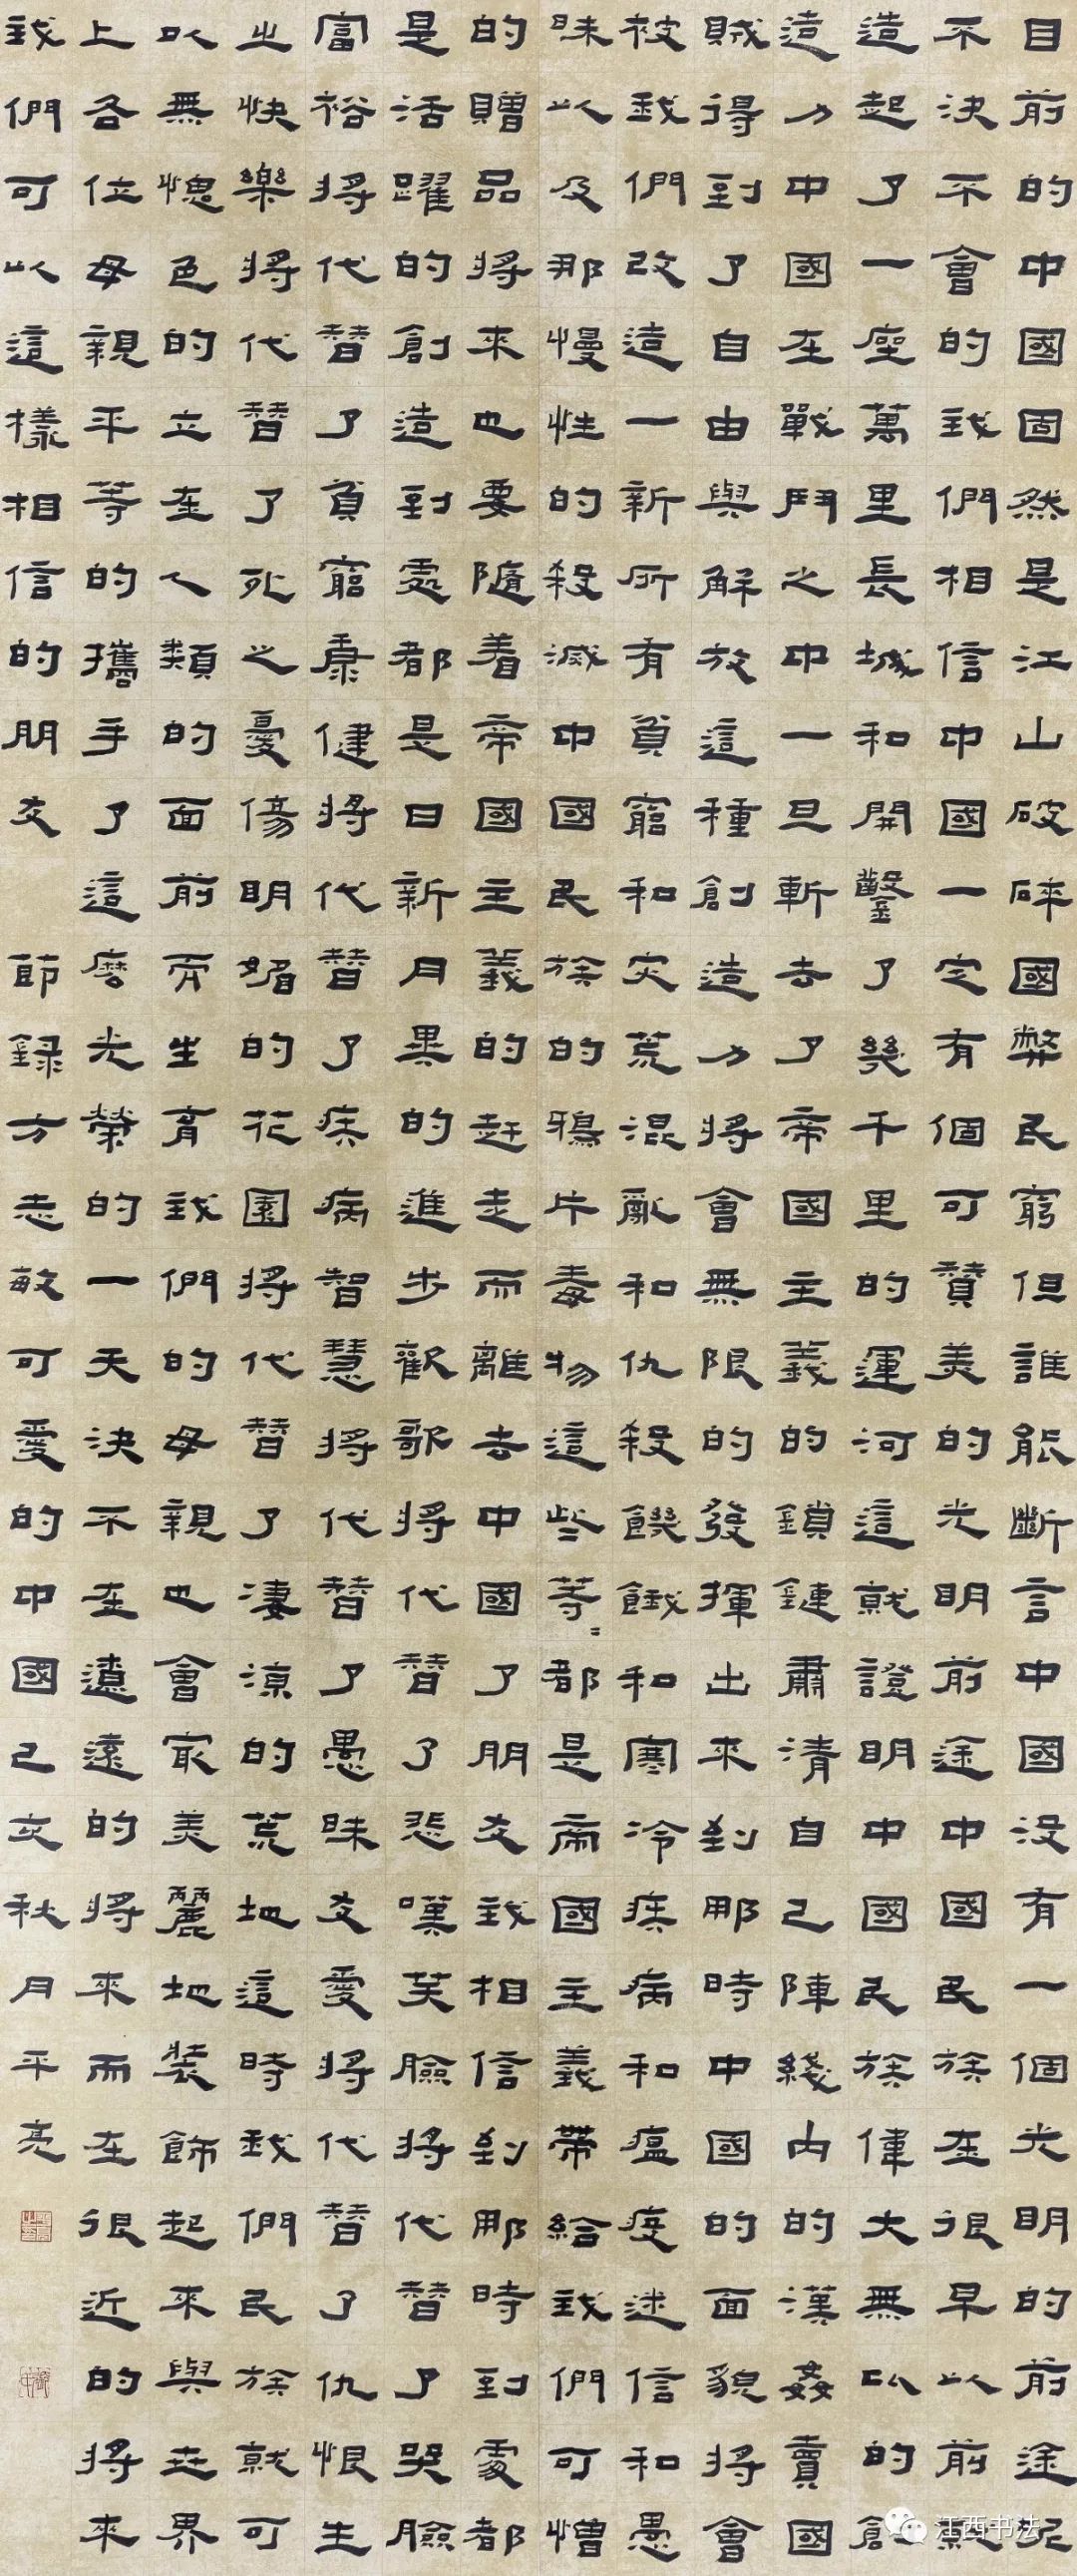 目前的中國固然是江山破碎國弊民窮但誰能斷言中國沒有一個光明的前途呢
不決不會的我們相信中國一定有個可贊美的光明前途中國民族在很早以前就
造起了一座萬里長城和開鑿了幾千里的運河這就證明中國民族偉大無以的創
造力中國在戰鬥之中一旦斬去了帝國主義的鎖鏈肅清自己陣綫內的漢姦賣國
賊得到了自由與解放這種創造力將會無限的發揮出來到那時中國的面貌將會
被我們改造一新所有貧窮和灾荒混亂和仇殺饑餓和寒冷疾病和瘟疫迷信和愚
昧以及那慢性的殺滅中國民族的鴉片毒物這些等〻都是帝國主義帶給我們可憎
的贈品將來也要隨着帝國主義的赶走而離去中國了朋友我相信到那時到處都
是活躍的創造到處都是日新月異的進步歡歌將代替了悲嘆笑臉將代替了哭臉
富裕將代替了貧窮康健將代替了疾病智慧將代替了愚昧友愛將代替了仇恨生
之快樂將代替了死之憂傷明媚的花園將代替了凄凉的荒地這時我們民族就可
以無愧色的立在人類的面前而生育我們的母親也會最美麗地裝飾起來與世界
上各位母親平等的攜手了這麼光榮的一天決不在遼遠的將來而在很近的將來
我們可以這樣相信的朋友 節錄方志敏可愛的中國己亥秋月平亮
江西书法